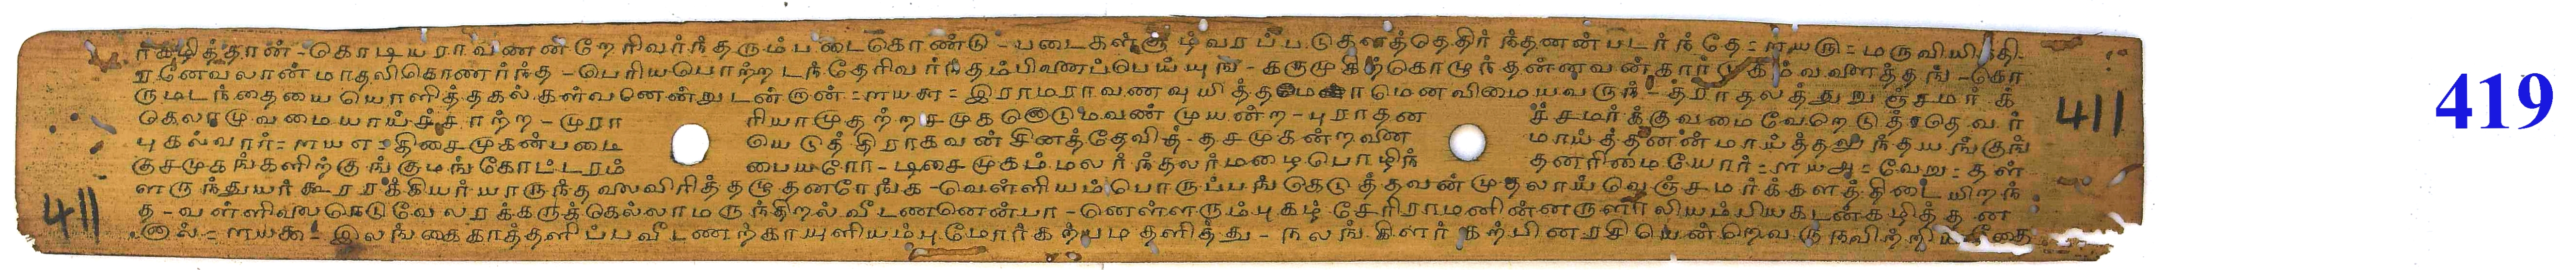 ர்கழித்தான் - கொடிய ராவணன் றேரிவர்ந் தரும்படைகொண்டு - படைகள் சூழ்வரப்படுகளத்தெதிர்ந்தனன் படர்ந்தே = ளயரு = மருவியி தி
ரனேவலான் மாதலிகொணர்ந்த - பெரியபொற்றடந் தேரிவர்ந் தம்பிவணப்பெய்யுங் - கருமுகிற்கொழுந் தன்னவன் கார்முகம் வவணத்தங் - கொ
ருமடந்தையை யொளித்தகல் கள்வனென்றுடன்றான் = ளயசு = இராமராவண வுயித்தமெ மெனவிமையவரும் - தராதலத்துறுஞ்சமர்க்
கெலாமுவமையாய்ச் சாற்ற - முரா ரியாமுதற்றசமுக னொடுமவண் முயன்ற - புராதன ச் சமர்க்குவமை வேறெடுத் தெவர்
புகல்வார் = ளயஎ = திசைமுகன்படை யெடுத்திராகவன் சினத்தேவித் - தசமுகன்றவண மாய்த்தனன் மாய்த்தலு ந்தயங்குங்
குசமுகங்களிற்குங்குமங்கோட்டரம் பையரோ - டிசைமுகம் மலர்ந்தலர்மழைபொழிந் தனரிமையோர் = ளயஅ = வேறு = தள்
ளருந்துயர்கூரரக்கியர்யாருந்தலைவிரித்தழுதனரேங்க - வெள்ளியம்பொருப்பங் கெடுத்தவன் முதலாய் வெஞ்சமர்க்களத்திடை யிறந்
த - வள்ளிலை நெடுவேலரக்கருக்கெல்லாமருந்திறல் வீடணனென்பா - னெள்ளரும்புகழ் சேரிராமனின்னருளாலியம்பியகடன்கழித்தன
னால் = ளயகூ = இலங்கைகாத்தளிப்பவீடணற்காயுளியம்புமோர்கற்பமதளித்து - நலங்கிளர் கற்பினரசியென்றெவரு நவிற்றிய சீதை
411
411
419